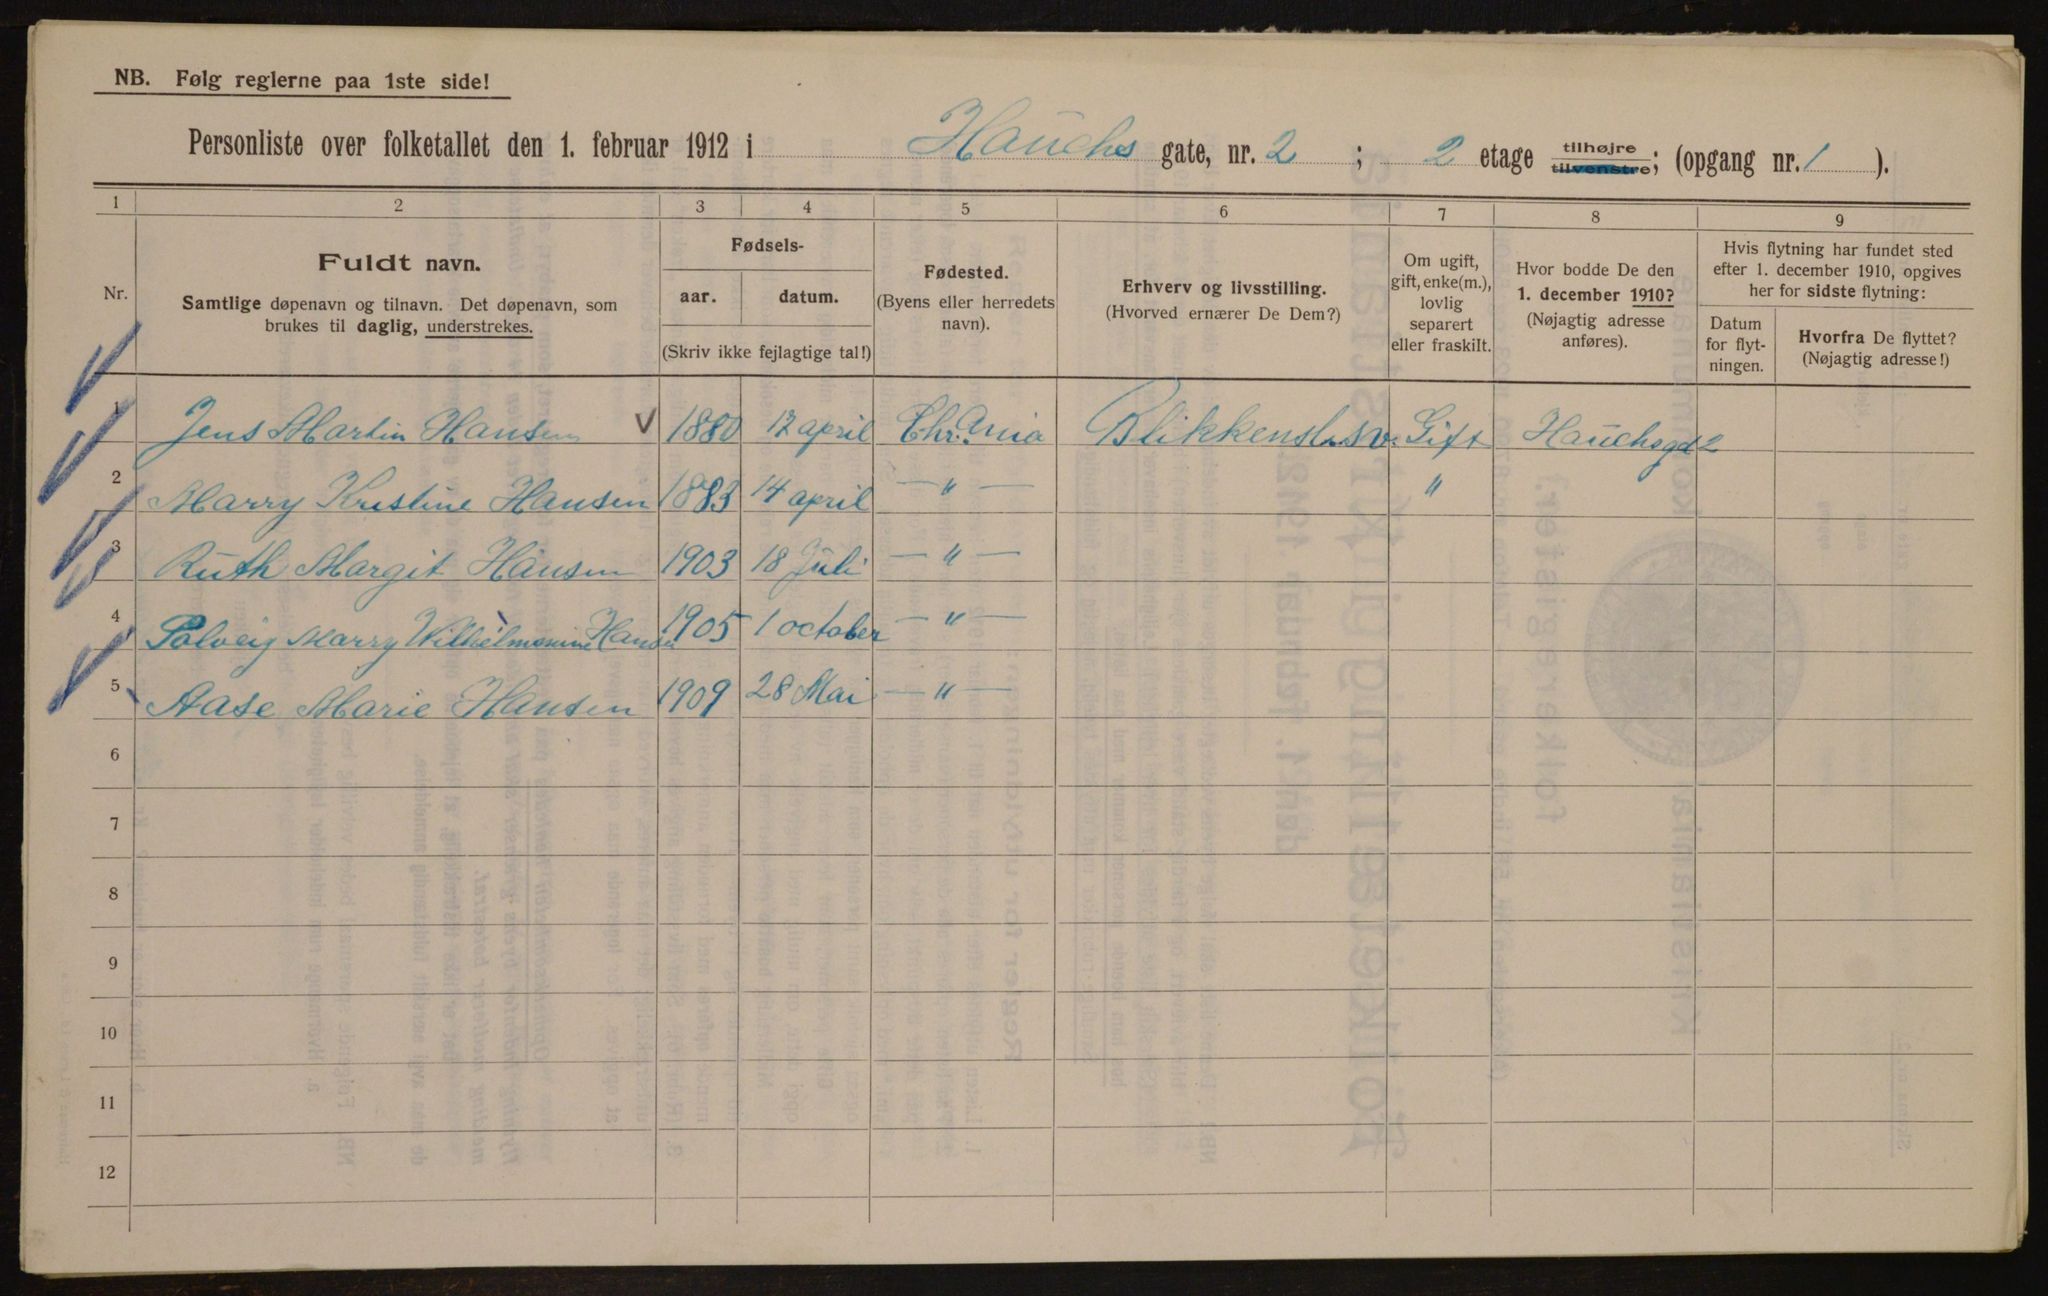 NB. Følg reglerne paa 1ste side!
Personliste over folketallet den 1. februar 1912 i Hauchs gate, nr. 2 ; 2 etage tilhøjre tilvenstre; (opgang nr. 1 ).
1 2 3 4 5 6 7 8 9
Nr.
Fuldt navn.
Samtlige døpenavn og tilnavn. Det døpenavn, som
brukes til daglig, understrekes.
Fødsels-
aar. datum.
(Skriv ikke fejlagtige tal!)
Fødested.
(Byens eller herredets
navn).
Erhverv og livsstilling.
(Hvorved ernærer De Dem?)
Om ugift,
gift, enke(m.),
lovlig
separert
eller fraskilt.
Hvor bodde De den
1. december 1910?
(Nøjagtig adresse
anføres).
Hvis flytning har fundet sted
efter 1. december 1910, opgives
her for sidste flytning:
Datum
for flyt-
ningen.
Hvorfra De flyttet?
(Nøjagtig adresse!)
1 Jens Martin Hansen V 1880 12 april Chr.Ania Blikkensl.sv. Gift Hauchsgd 2
2 Marry Kristine Hansen 1883 14 april — " — "
3 Ruth Margit Hansen 1903 18 Juli — " —
4 Solveig Marry Wilhelmmine Hansen 1905 1 october — " —
5 Aase Marie Hansen 1909 28 Mai — " —
6
7
8
9
10
11
12